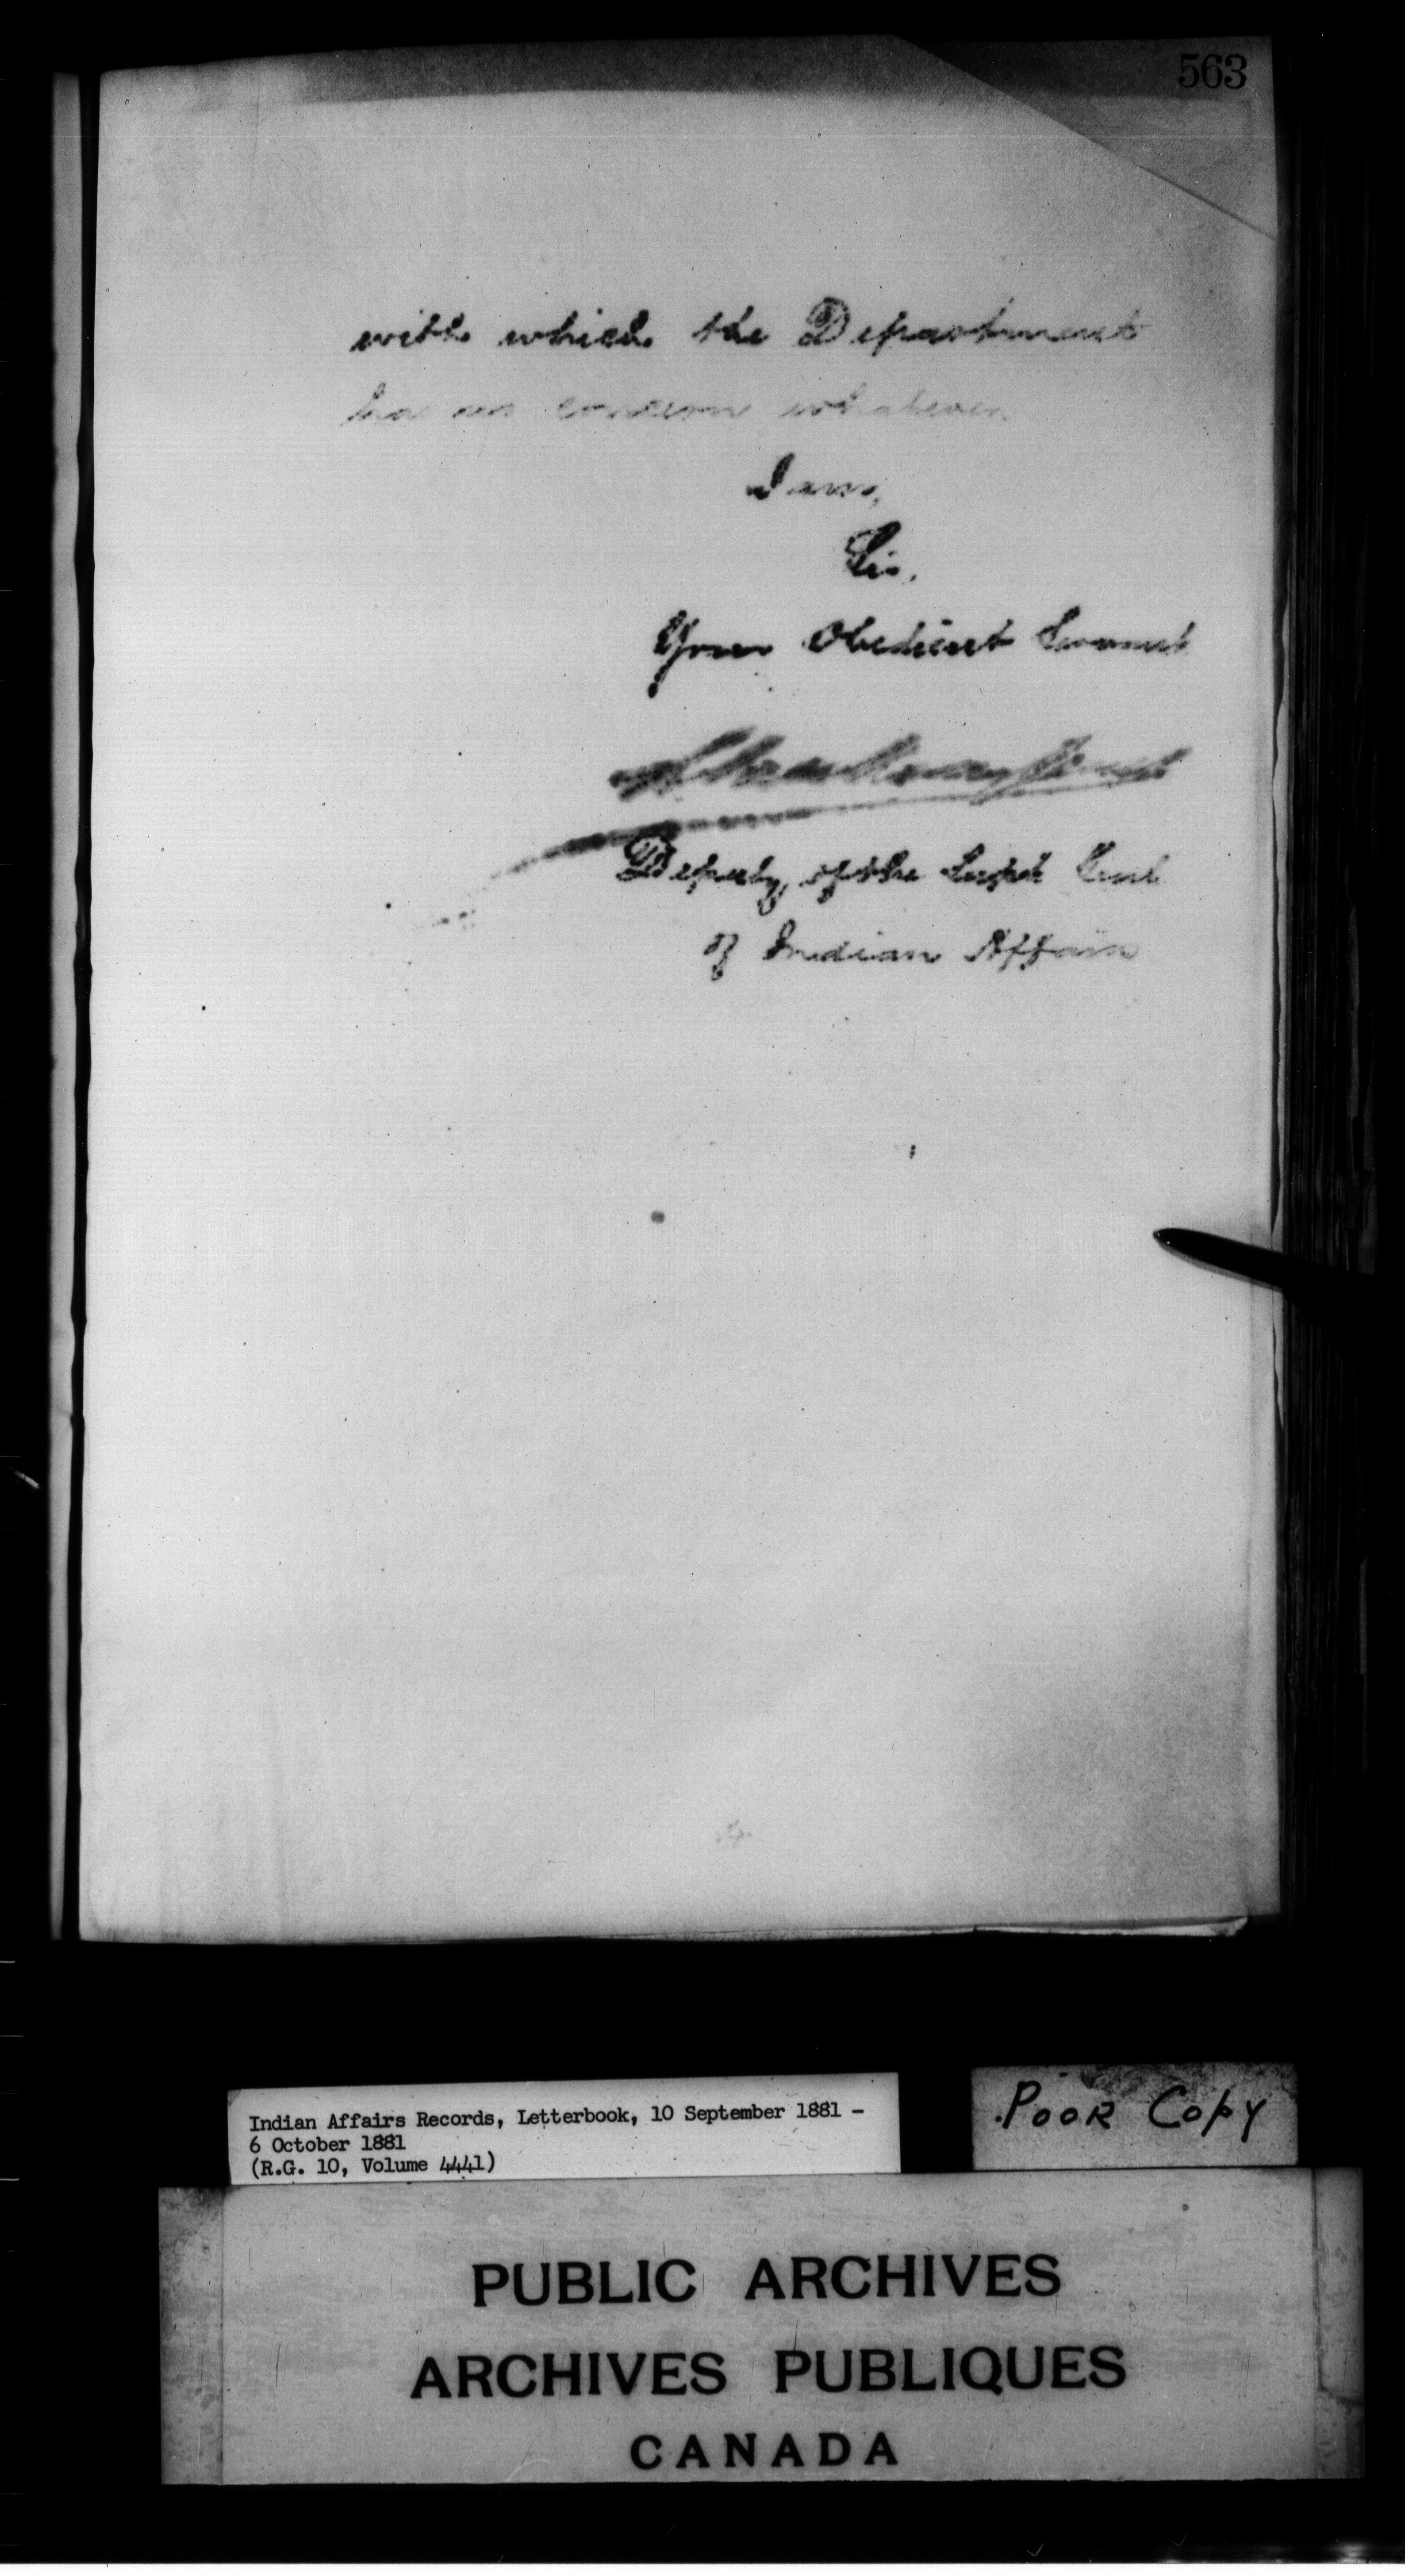 563
with which the Department
has no concern whatever.
I am,
Sir,
Your Obedient Servant
Deputy of the Supt Genl
of Indian Affairs
Indian Affairs Records, Letterbook, 10 September 1881 –
6 October 1881
(R.G. 10, Volume 4441)
POOR COPY
PUBLIC ARCHIVES
ARCHIVES PUBLIQUES
CANADA